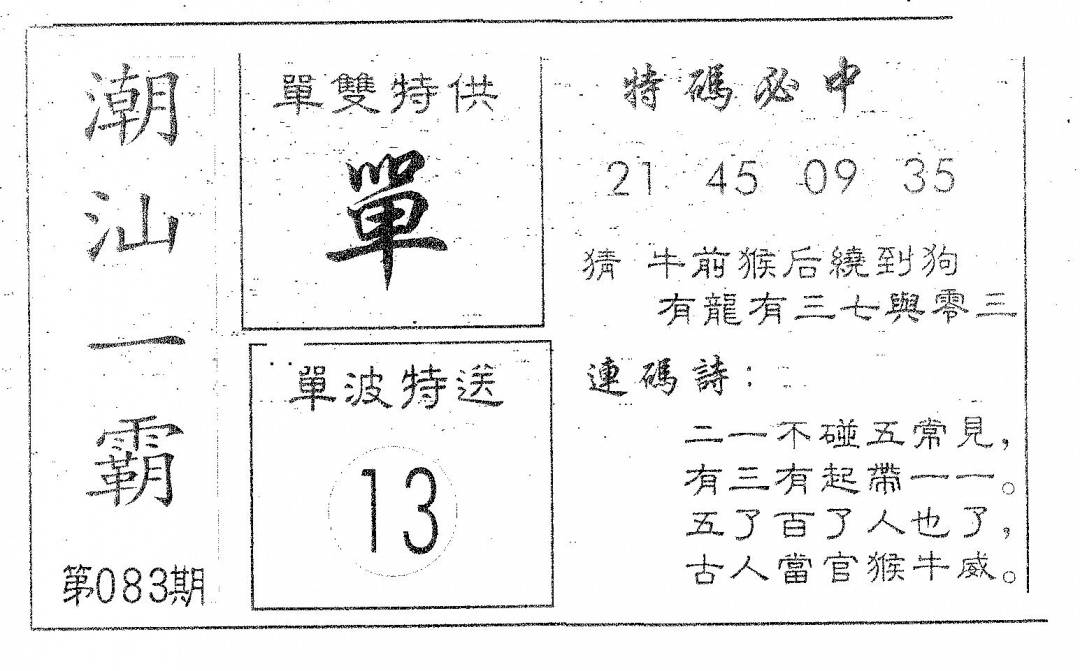 潮汕一霸
第083期
單雙特供
單
單波特送
13
特碼必中
21 45 09 35
猜 牛前猴后繞到狗
有龍有三七與零三
連碼詩：
二一不碰五常見，
有三有起帶一一。
五了百了人也了，
古人當官猴牛威。